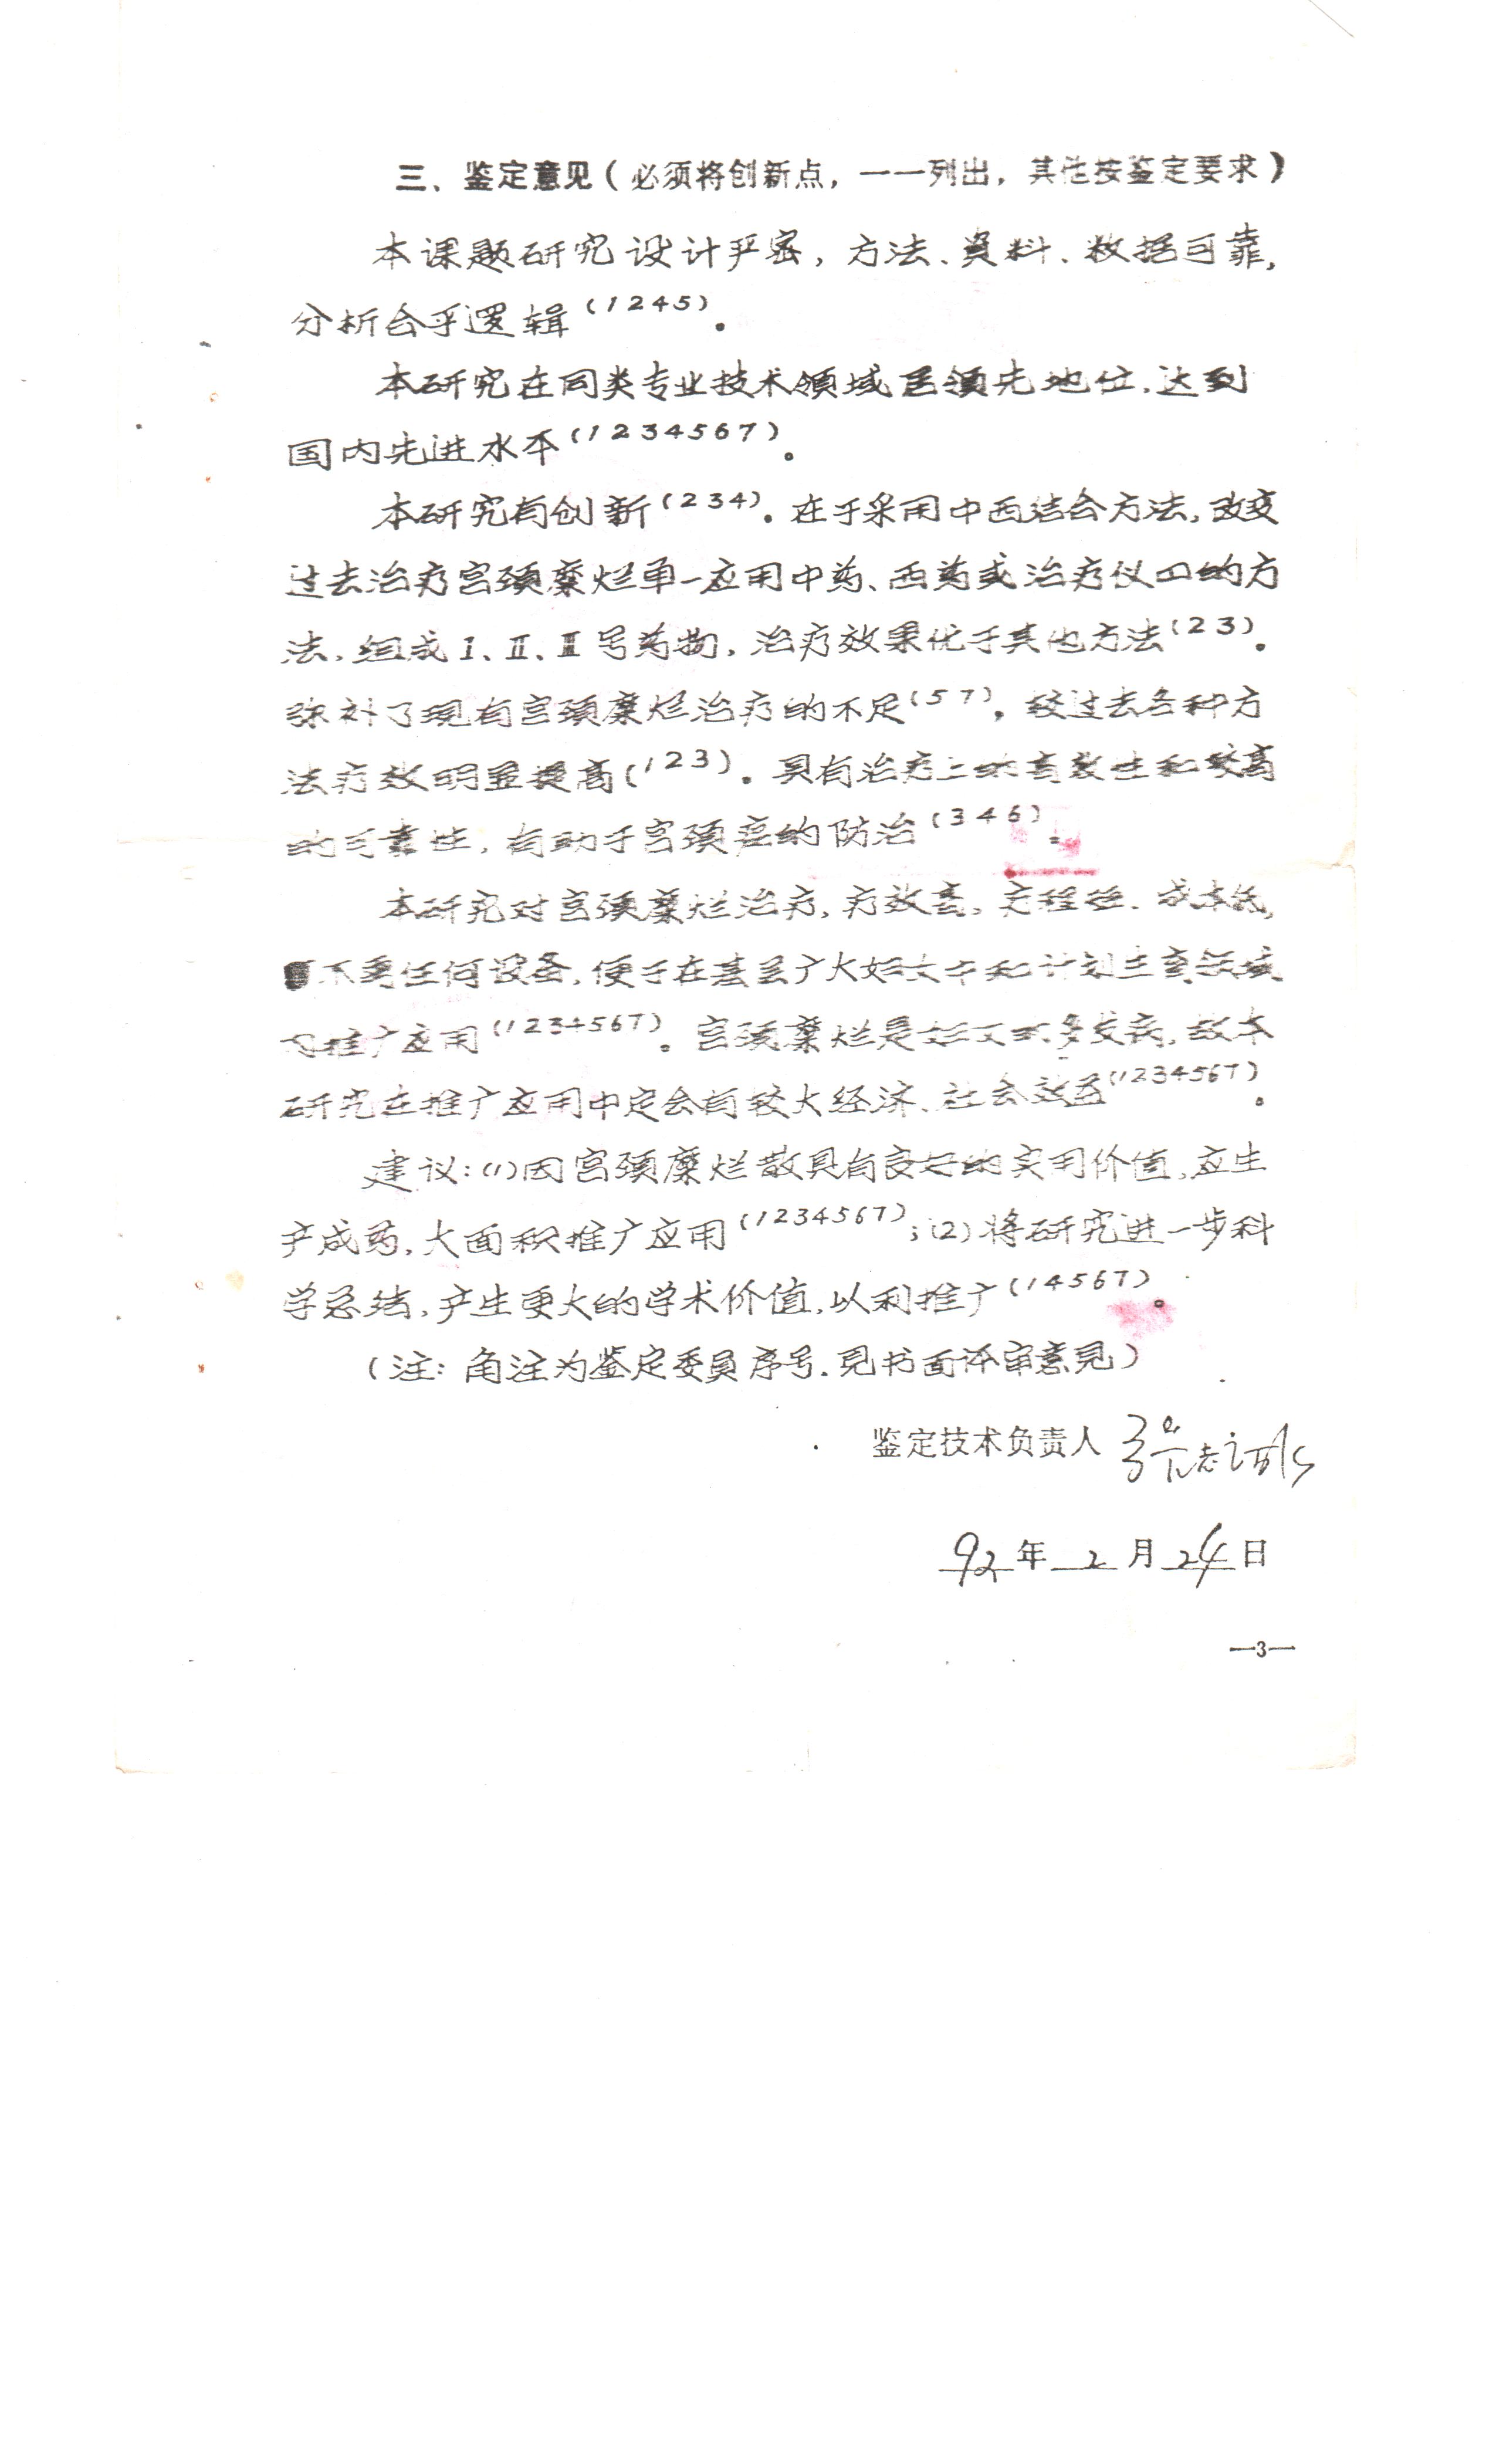 三、鉴定意见（必须将创新点，一一列出，其他按鉴定要求）
本课题研究设计严密，方法、资料、数据可靠，
分析合乎逻辑(1245)。
本研究在同类专业技术领域居领先地位，达到
国内先进水平(1234567)。
本研究有创新(234)。在于采用中西结合方法，改变
过去治疗宫颈糜烂单一应用中药、西药或治疗仪四的方
法，组成Ⅰ、Ⅱ、Ⅲ号药物，治疗效果优于其他方法(23)。
弥补了现有宫颈糜烂治疗的不足(57)，较过去各种方
法疗效明显提高(123)。具有治疗上的高效性和较高
的可靠性，有助于宫颈癌的防治(346)。
本研究对宫颈糜烂治疗，疗效高，疗程短、成本低，
不要任何设备，便于在基层广大妇女中和计划生育领域
推广应用(1234567)。宫颈糜烂是妇女多发病，故本
研究在推广应用中定会有较大经济、社会效益(1234567)。
建议：(1)因宫颈糜烂散具有良好的实用价值，应生
产成药，大面积推广应用(1234567)；(2)将研究进一步科
学总结，产生更大的学术价值，以利推广(14567)。
（注：角注为鉴定委员序号，见书面评审意见）
鉴定技术负责人
92年2月24日
—3—